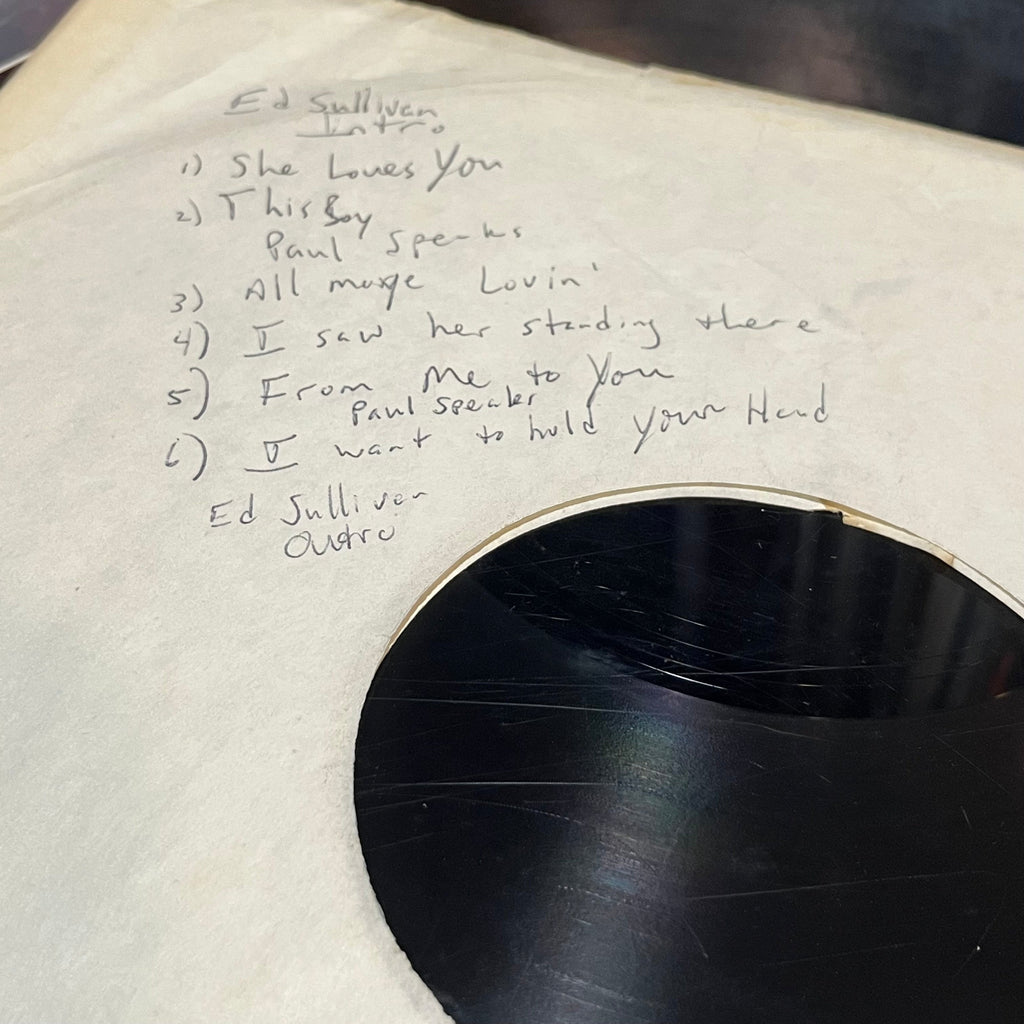 Ed Sullivan
Intro
1) She Loves You
2) This Boy
Paul Speaks
3) All mye Lovin'
4) I saw her standing there
5) From Me to You
Paul Speaks
6) I want to hold your Hand
Ed Sullivan
Outro